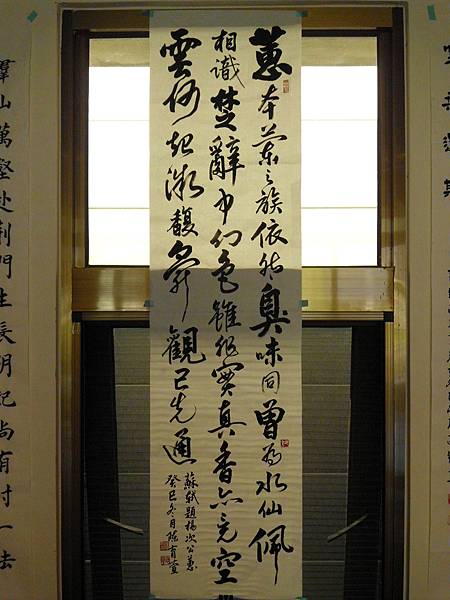 蕙本蘭之族依然臭味同曾為水仙佩
相識楚辭中幻色雖非實真香亦竟空
雲何起微馥鼻觀已先通
蘇軾題楊次公蕙
癸巳冬月陳育萱
羣山萬壑赴荊門生長明妃尚有村一去